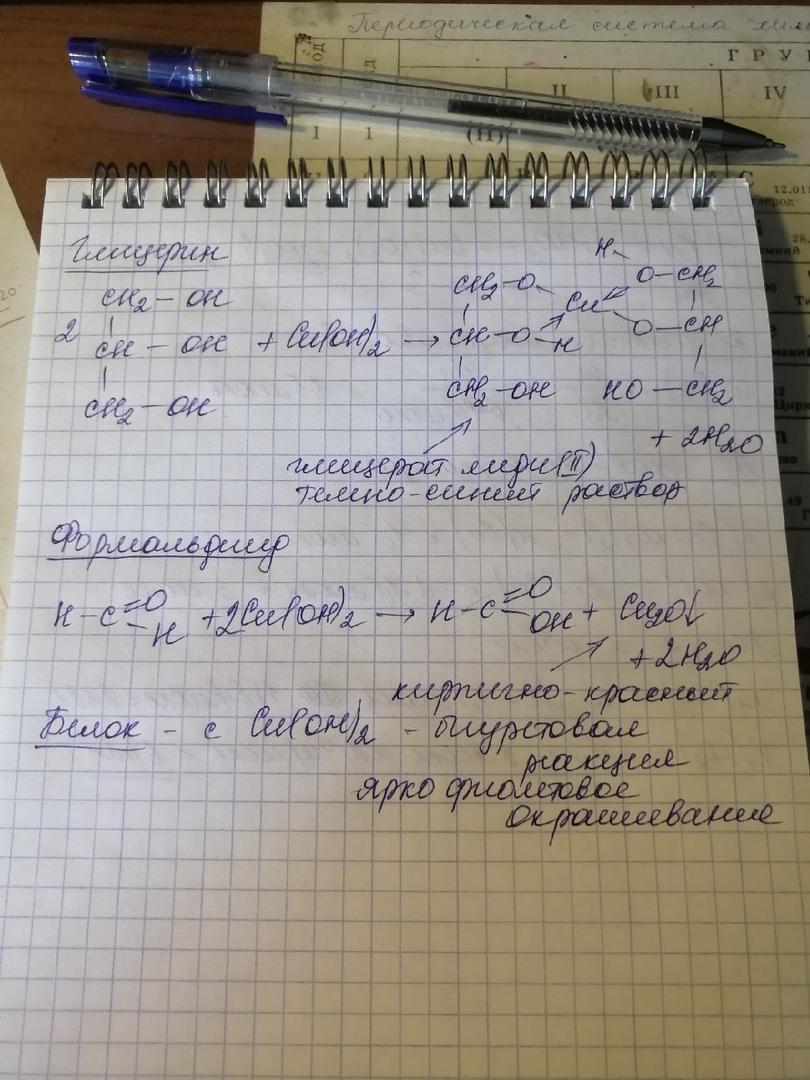 Периодическая система хим
ГРУ
II III IV
I I (H)
12,01
углерод
28,
20.
Глицерин
CH₂-OH CH₂-O H O-CH₂
2 CH-OH + Cu(OH)₂ → CH-O-H Cu O-CH
CH₂-OH CH₂-OH HO-CH₂
+ 2H₂O
глицерат меди(II)
темно-синий раствор
Формальдегид
H-C=O H +2Cu(OH)₂ → H-C=O OH + Cu₂O↓
+2H₂O
кирпично-красный
Белок - с Cu(OH)₂ - биуретовая
ракция
ярко фиолетовое
окрашивание